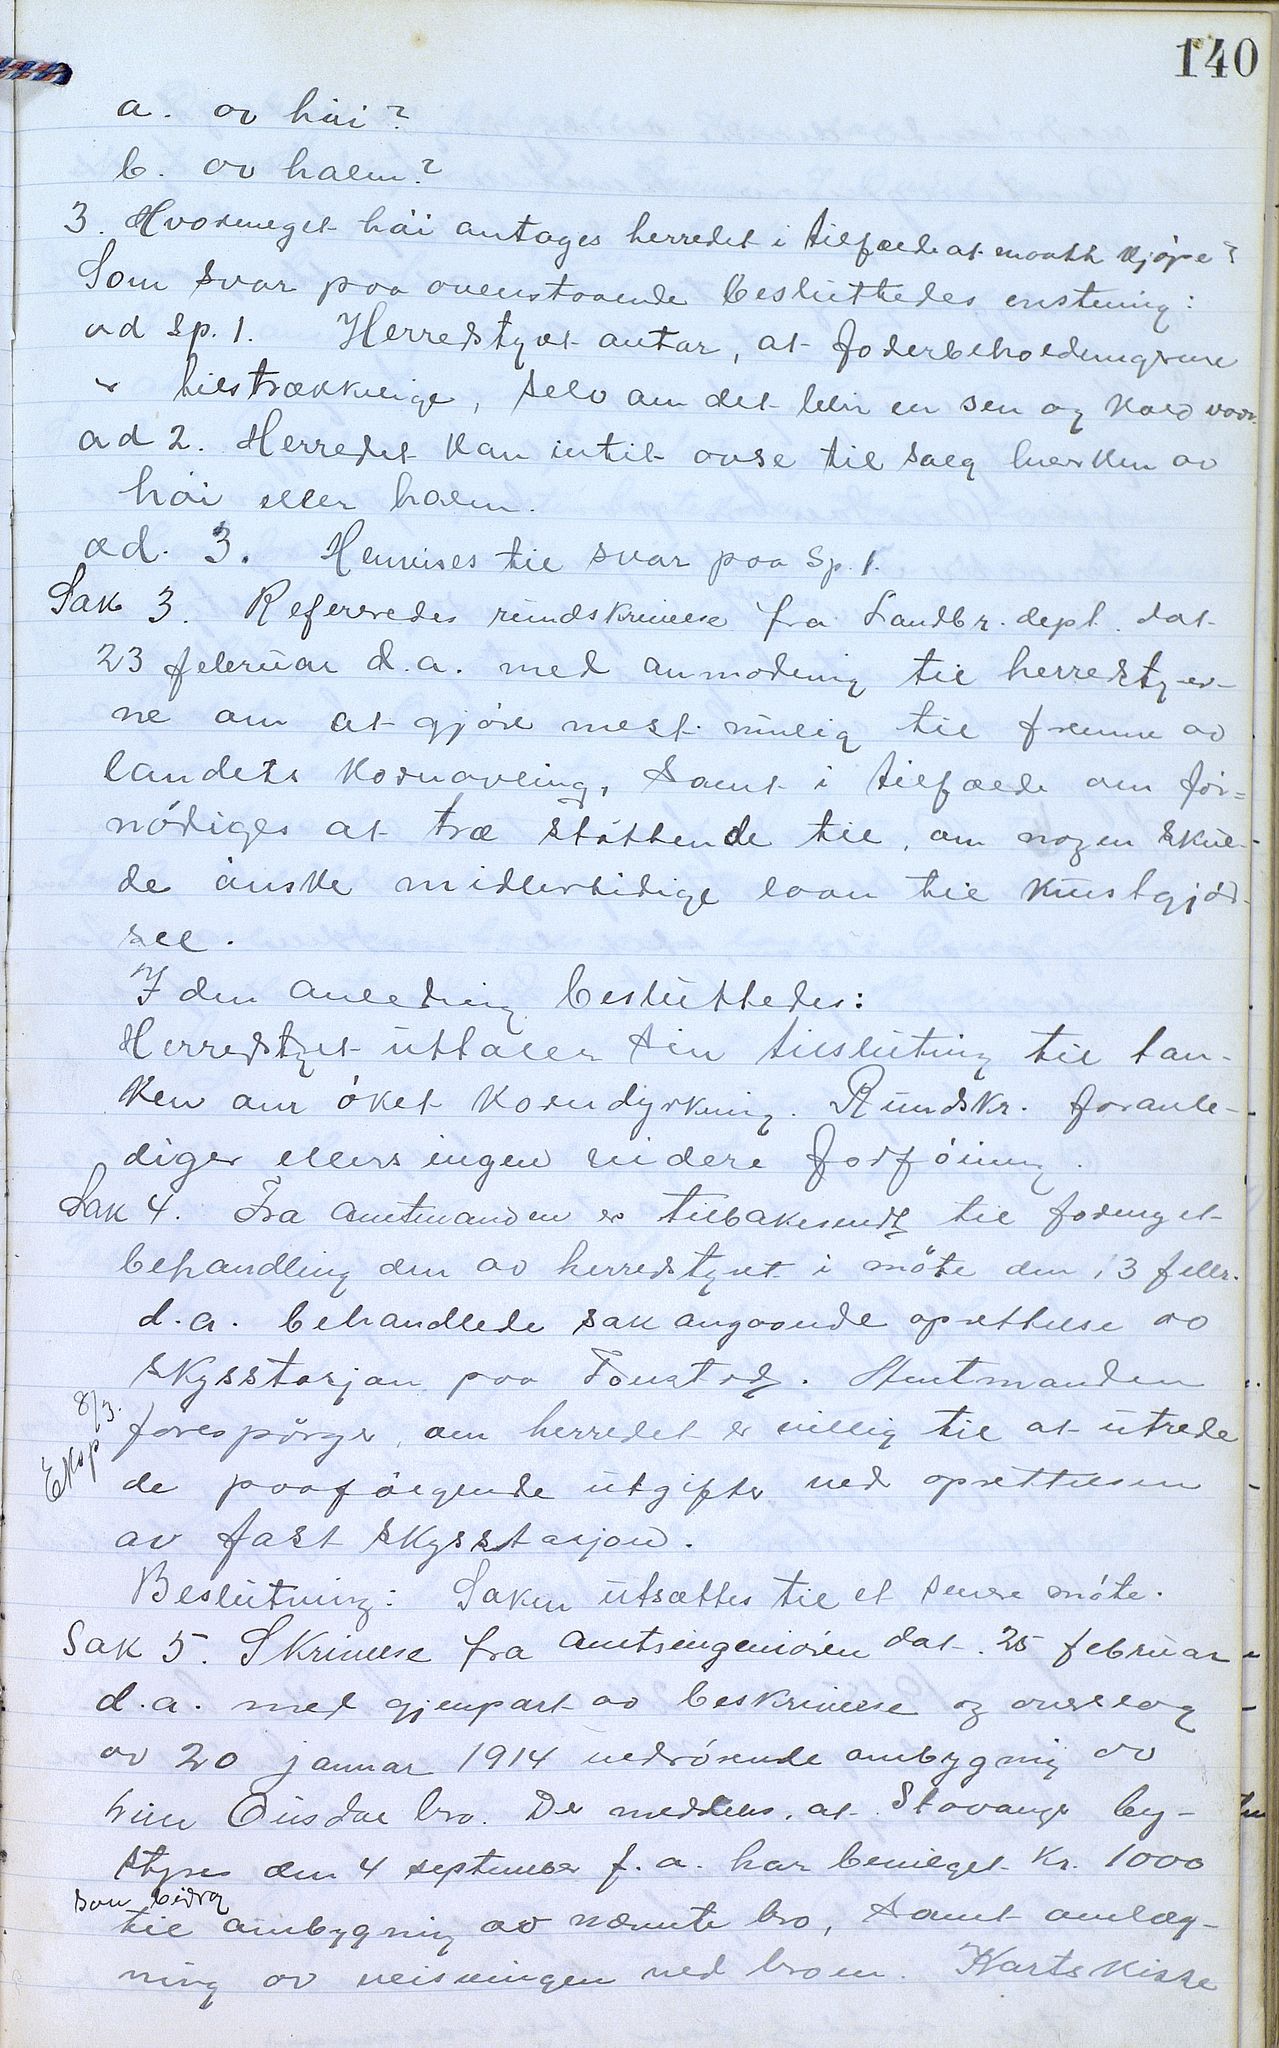 140
a. av høi?
b. av halm?
3. Hvormeget høi antages herredet i tilfælde at maatte kjøpe?
Som svar paa ovenstaaende besluttedes enstemmig:
ad sp. 1. Herredstyret antar, at foderbeholdningerne
er tilstrækkelige, selv om det blir en sen og kold vaar.
ad 2. Herredet kan intet avse til salg hverken av
høi eller halm.
ad. 3. Henvises til svar paa sp. 1.
Sak 3. Refereredes rundskrivelse fra Landbr. dept. dat.
23 februar d.a. med anmodning til herredstyrer-
ne om at gjøre mest mulig til fremme av
landets kornavling, samt i tilfælde om for=
nødiges at træ støttende til, om nogen skul-
de ønske midlertidige laan til kunstgjød-
sel.
I den anledning besluttedes:
Herredstyret uttaler sin tilslutning til tan-
ken om øket korndyrkning. Rundskr. foranle-
diger ellers ingen videre forføining.
Sak 4. Fra amtmanden er tilbakesendt til fornyet
behandling den av herredstyret i møte den 13 febr.
d.a. behandlede sak angaaende oprettelse av
skysstasjon paa Fougstad. Amtmanden
Eksp 8/3.
forespørger, om herredet er villig til at utrede
de paafølgende utgifter ved oprettelsen
av fast skysstasjon.
Beslutning: Saken utsættes til et senere møte.
Sak 5. Skrivelse fra amtsingeniøren dat. 25 februar
d.a. med gjenpart av beskrivelse og overslag
av 20 januar 1914 vedrørende ombygning av
hin Ousdal bro. Der meddeles, at Stavanger by-
styre den 4 september f.a. har bevilget kr. 1000
som bidrag
til ombygning av nævnte bro, samt omlæg-
ning av veisvingen ved broen. Kartskisse